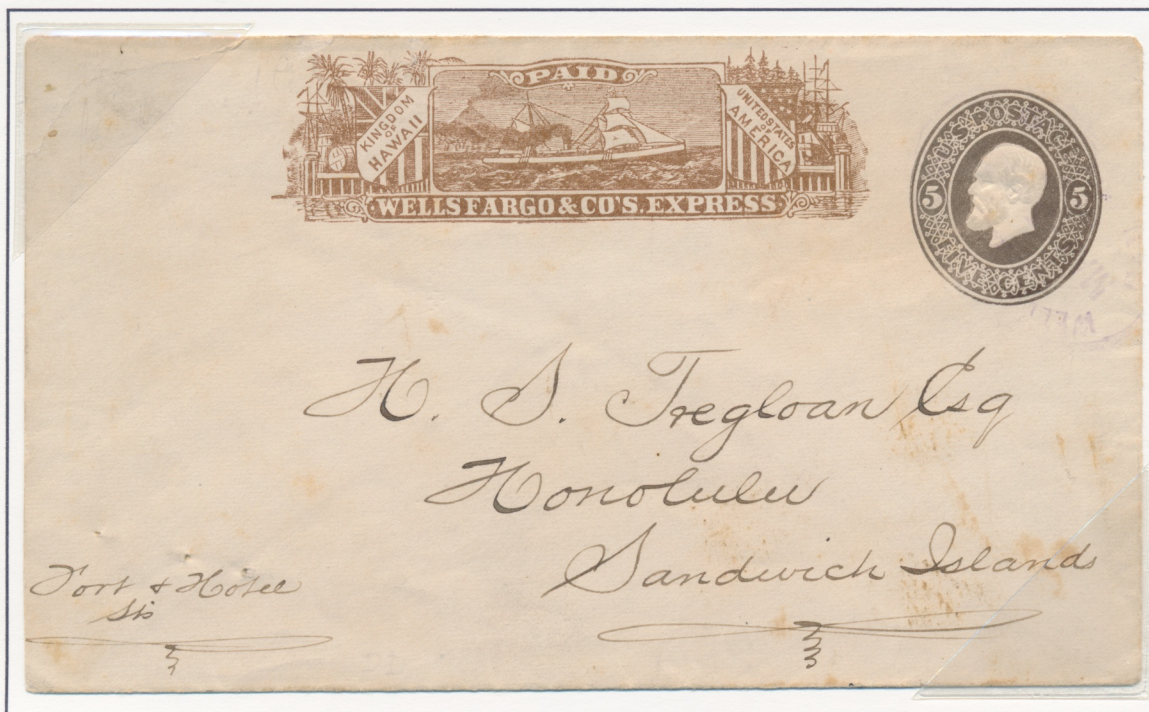 PAID
KINGDOM
OF
HAWAII
UNITED STATES
OF
AMERICA
WELLS FARGO & CO'S. EXPRESS.
U.S. POSTAGE
5 5
FIVE CENTS
H. S. Tregloan Esq
Honolulu
Sandwich Islands
Fort & Hotel
Sts